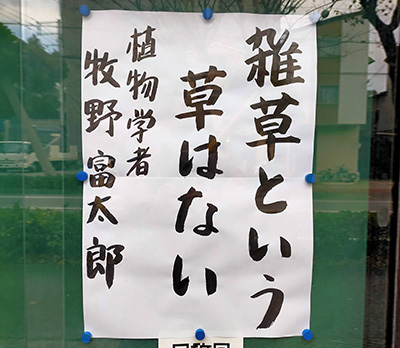 雑草という
草はない
植物学者
牧野富太郎